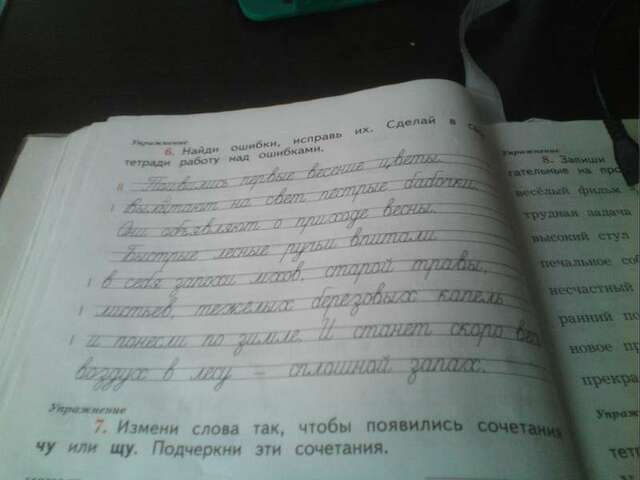 Упражнение
6. Найди ошибки, исправь их. Сделай в
тетради работу над ошибками.
II Поивились первые весение цветы.
I Вылитают на свет пестрые бабочки.
Они объявляют о приходе весны.
Быстрые лесные ручьи впитали
I в себя запохи мхов, старой травы,
I листьев, тежелых березовых капель
I и понесли по зимле. И станет скоро
воздух в лесу — сплошной запах.
Упражнение
7. Измени слова так, чтобы появились сочетания
чу или щу. Подчеркни эти сочетания.
Упражнение
8. Запиши
гательные на про
весёлый фильм
трудная задача
высокий стул
печальное соб
несчастный
ранний по
новое пр
прекра
Упраж
тет